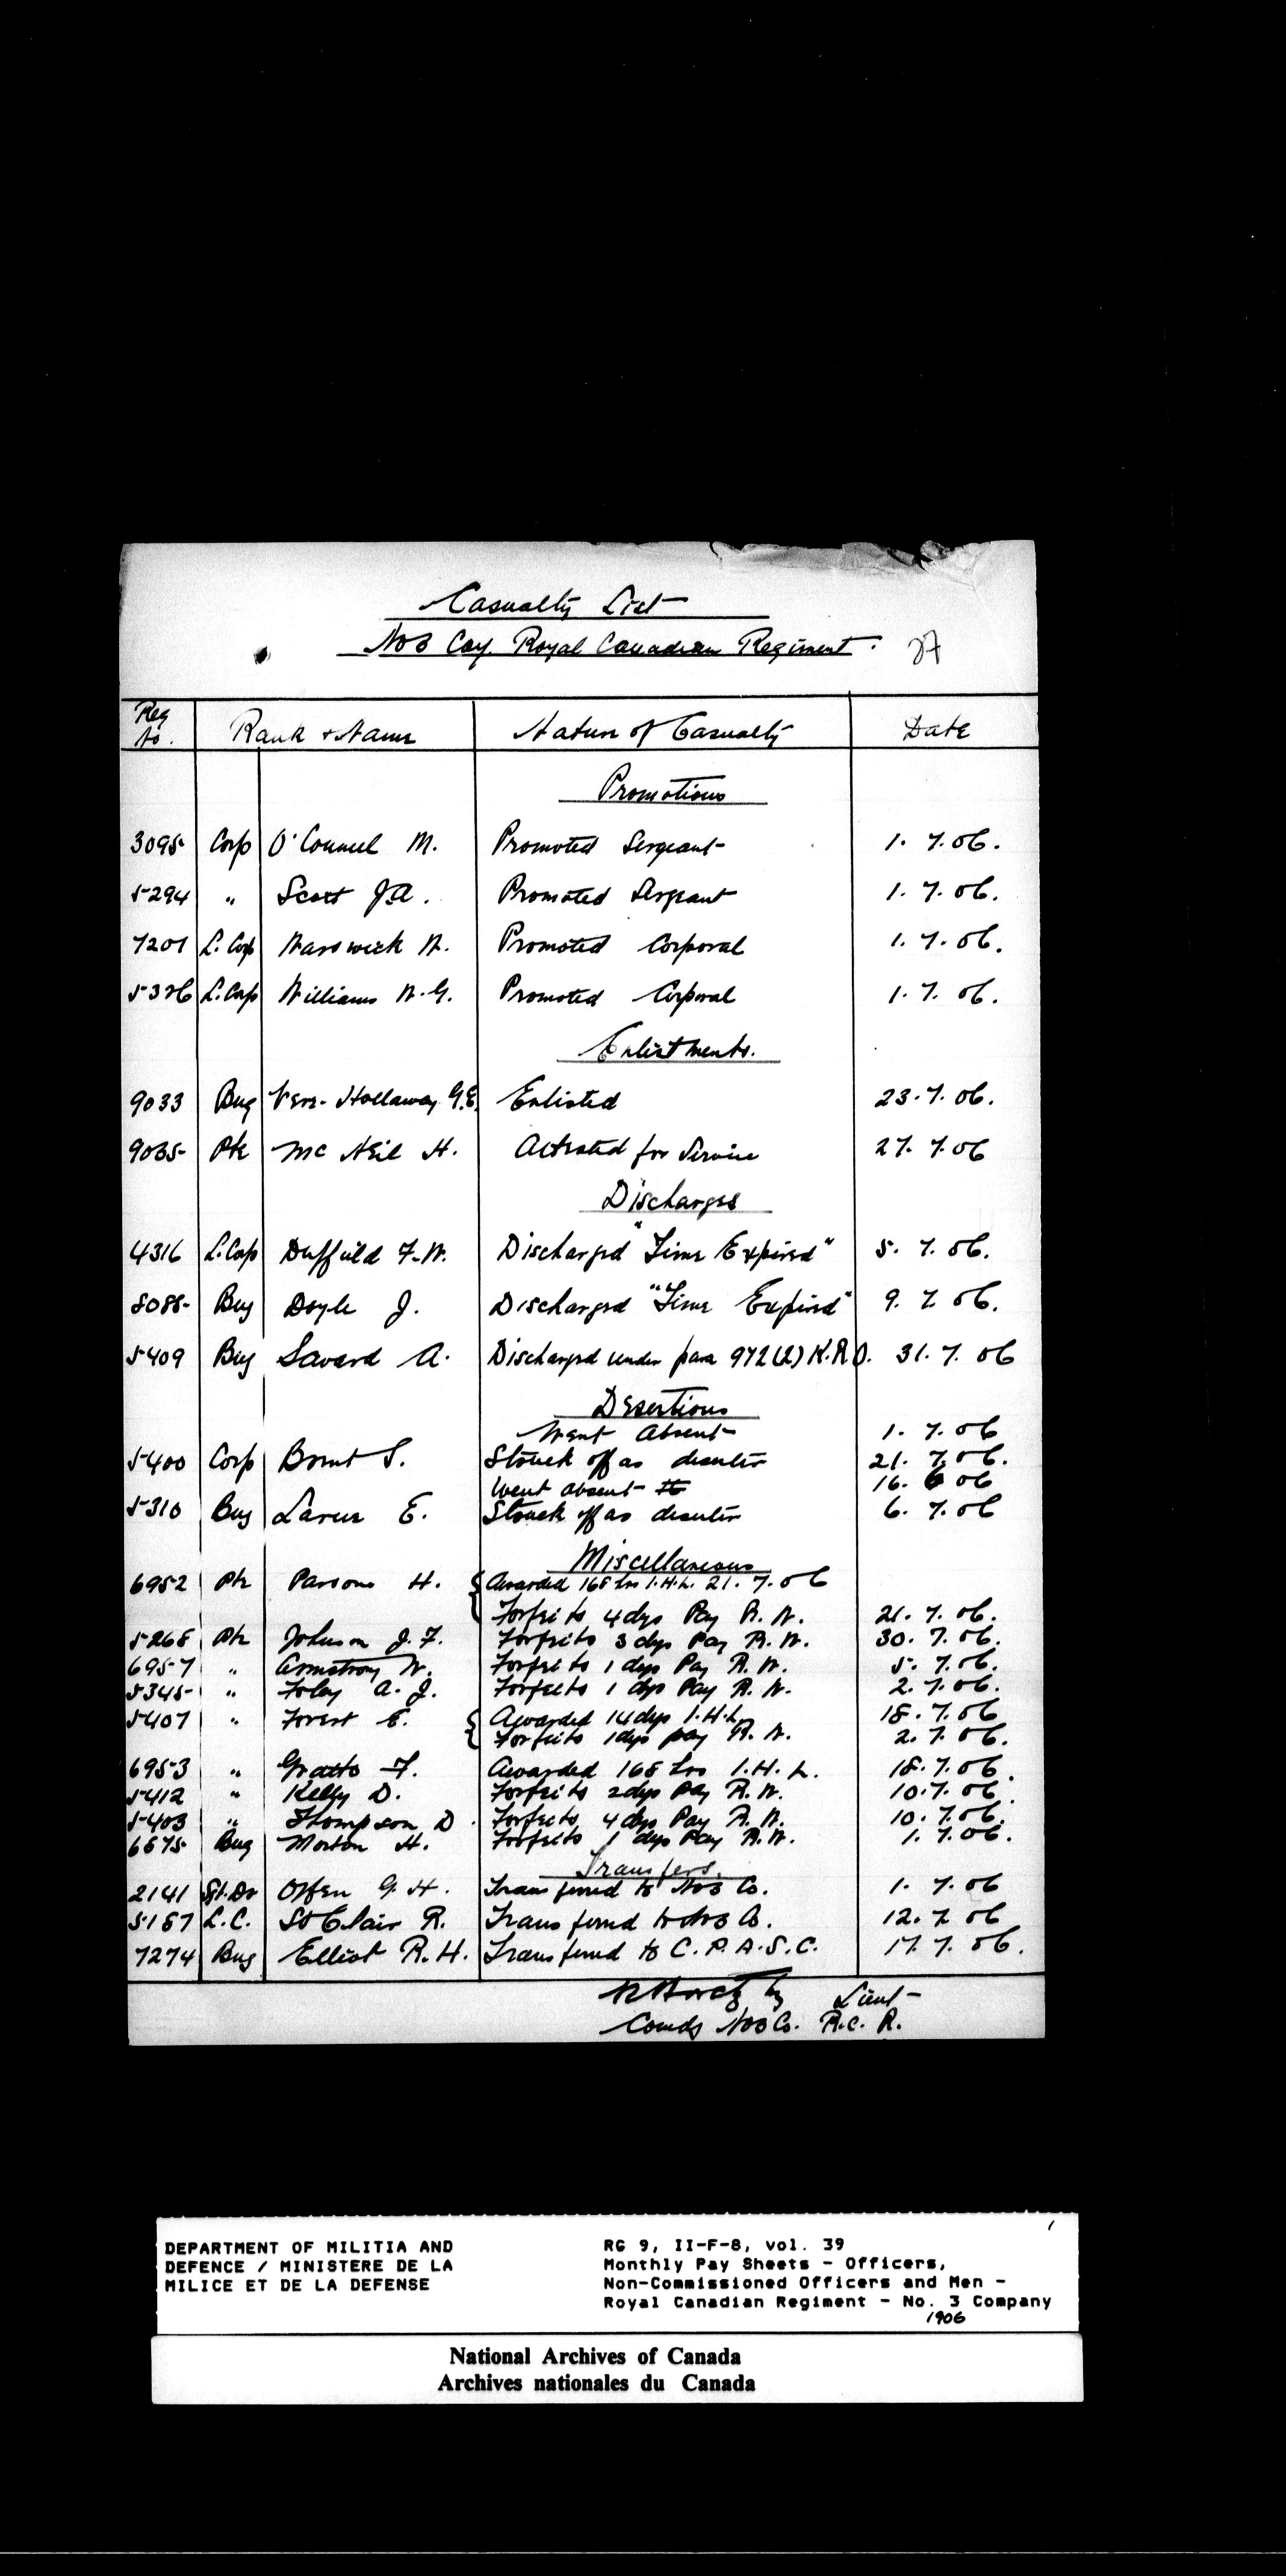 Casualty List
No 3 Coy. Royal Canadian Regiment.
Reg No. Rank & Name Nature of Casualty Date
Promotions
3095 Corp O'Connel M. Promoted Sergeant 1. 7. 06.
5294 " Scott J.A. Promoted Sergeant 1. 7. 06.
7201 L. Corp Warwick W. Promoted Corporal 1. 7. 06.
5326 L. Corp Williams W.G. Promoted Corporal 1. 7. 06.
Enlistments.
9033 Bug Vere-Hollaway G.E. Enlisted 23. 7. 06.
9035 Pte McNeil H. Attested for Service 27. 7. 06
Discharges
4316 L. Corp Duffield F.W. Discharged "Time Expired" 5. 7. 06.
5085 Bug Doyle J. Discharged "Time Expired" 9. 7. 06.
5409 Bug Savard A. Discharged under para 972(2) K.R.O. 31. 7. 06
Desertions
Went Absent 1. 7. 06
5400 Corp S. Struck off as deserter 21. 7. 06.
Went absent 16. 6 06
5310 Bug E. Struck off as deserter 6. 7. 06
Miscellaneous
6952 Pte Parsons H. Awarded 168 hrs I.H.L. 21. 7. 06
Forfeits 4 dys Pay R.W. 21. 7. 06.
5268 Pte Johnson J.F. Forfeits 3 dys Pay R.W. 30. 7. 06.
6957 " Armstrong W. Forfeits 1 dys Pay R.W. 5. 7. 06.
5345 " Foley A.J. Forfeits 1 dys Pay R.W. 2. 7. 06.
5407 " Forest E. Awarded 14 dys I.H.L. 18. 7. 06
Forfeits 1 dys pay R.W. 2. 7. 06.
6953 " Gratto F. Awarded 168 hrs I.H.L. 18. 7. 06.
5412 " Kelly D. Forfeits 2 dys Pay R.W. 10. 7. 06.
5403 " Thompson D. Forfeits 4 dys Pay R.W. 10. 7. 06.
6675 Bug Morton H. Forfeits 1 dys Pay R.W. 1. 7. 06.
Transfers.
2141 Sgt. Dr Offen G.H. Transferred to No 3 Co. 1. 7. 06
5187 L.C. St Clair R. Transferred to No 3 Co. 12. 7. 06
7274 Bug Elliot R.H. Transferred to C.P.A.S.C. 17. 7. 06.
Lieut
Comdg No 3 Co. R.C.R.
DEPARTMENT OF MILITIA AND
DEFENCE / MINISTERE DE LA
MILICE ET DE LA DEFENSE
RG 9, II-F-8, vol. 39
Monthly Pay Sheets - Officers,
Non-Commissioned Officers and Men -
Royal Canadian Regiment - No. 3 Company
1906
National Archives of Canada
Archives nationales du Canada